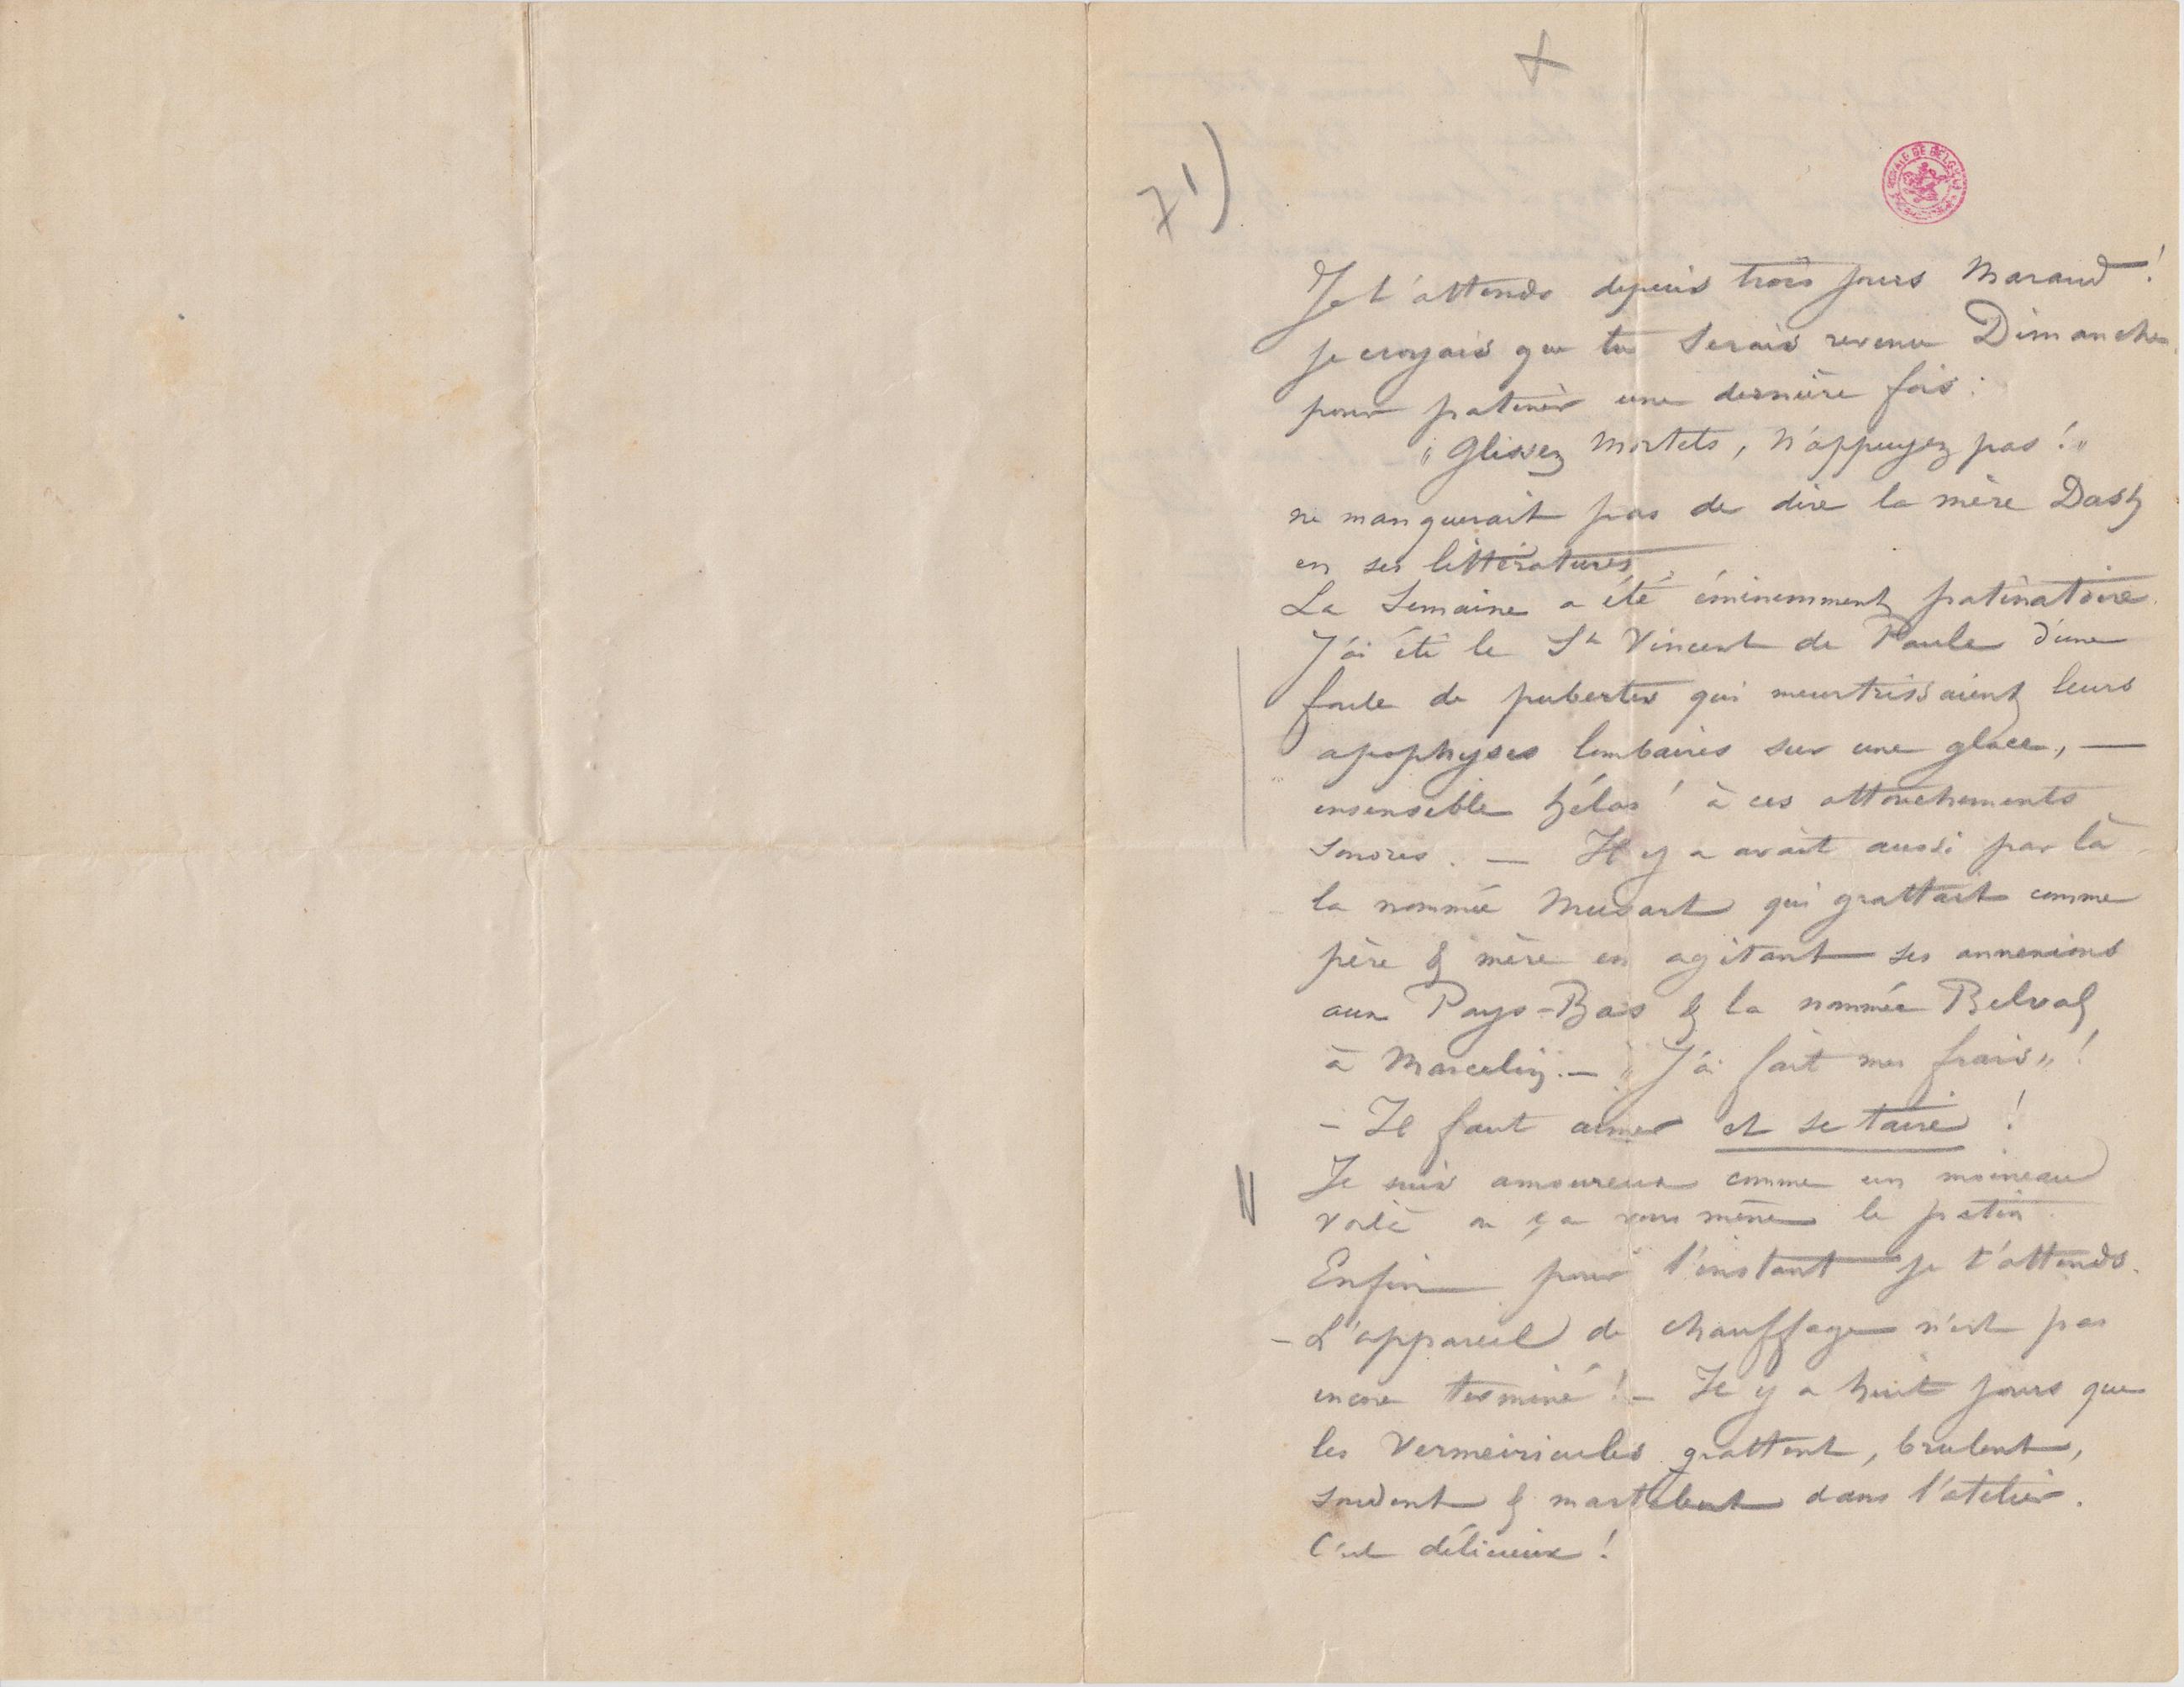 +
71)
Je t'attends depuis trois jours Maraud !
je croyais que tu serais revenu Dimanche
pour patiner une dernière fois :
"Glissez Mortels, n'appuyez pas !"
ne manquerait pas de dire la mère Dash
en ses littératures.
La Semaine a été éminemment patinatoire.
J'ai été le St Vincent de Paule d'une
foule de pubertés qui meurtrissaient leurs
apophyses lombaires sur une glace, —
insensible hélas ! à ces attouchements
sonores. — Il y a avait aussi par là
la nommée Musart qui grattait comme
père & mère en agitant ses annexions
aux Pays-Bas & la nommée Belval
à Marcelin. — "J'ai fait mes frais" !
- Il faut aimer et se taire !
Je suis amoureux comme un moineau
voilà où ça vous mène le patin.
Enfin pour l'instant je t'attends.
- L'appareil de chauffage n'est pas
encore terminé ! - Il y a huit jours que
les Vermeiricules grattent, brulent,
soudent & martelent dans l'atelier.
C'est délicieux !